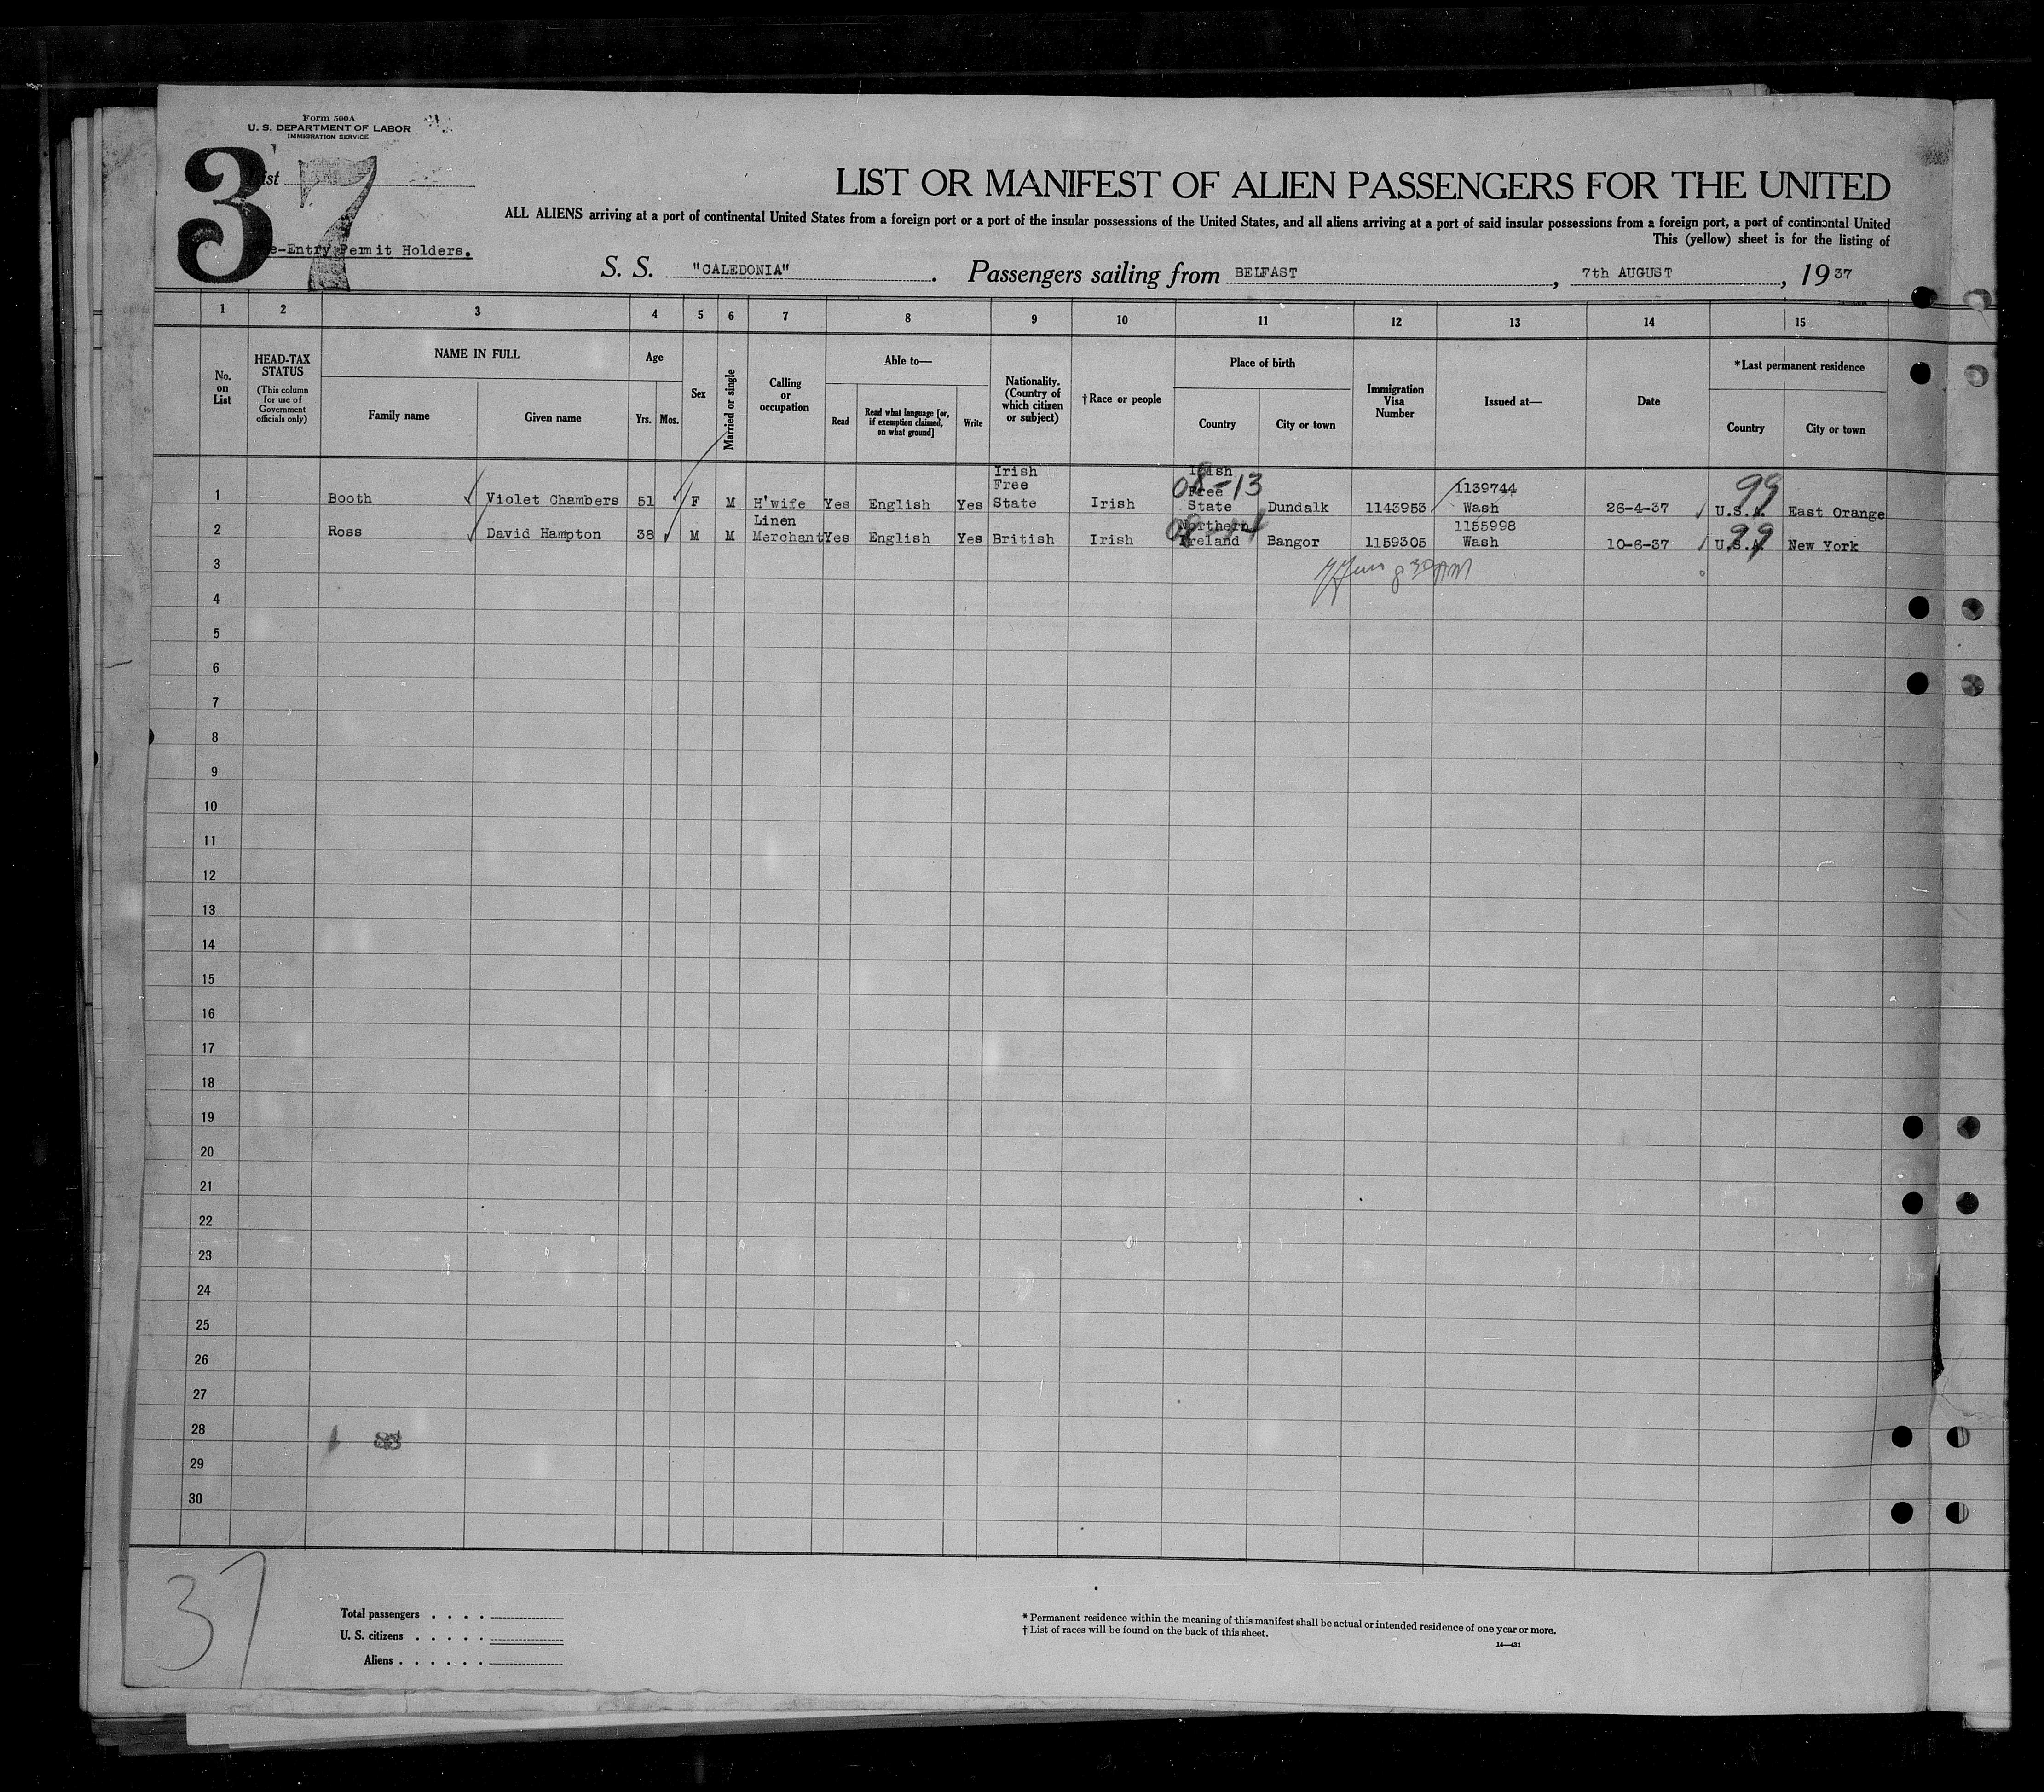 Form 500A
U. S. DEPARTMENT OF LABOR
IMMIGRATION SERVICE
37
ist
e-Entry Permit Holders.
LIST OR MANIFEST OF ALIEN PASSENGERS FOR THE UNITED
ALL ALIENS arriving at a port of continental United States from a foreign port or a port of the insular possessions of the United States, and all aliens arriving at a port of said insular possessions from a foreign port, a port of continental United
This (yellow) sheet is for the listing of
S. S. "CALEDONIA". Passengers sailing from BELFAST, 7th AUGUST, 1937
1 2 3 4 5 6 7 8 9 10 11 12 13 14 15
No. on List
HEAD-TAX STATUS
(This column for use of Government officials only)
NAME IN FULL
Family name Given name
Age
Yrs. Mos.
Sex
Married or single
Calling or occupation
Able to—
Read
Read what language [or, if exemption claimed, on what ground]
Write
Nationality. (Country of which citizen or subject)
†Race or people
Place of birth
Country City or town
Immigration Visa Number
Issued at—
Date
*Last permanent residence
Country City or town
1 Booth Violet Chambers 51 F M H'wife Yes English Yes Irish Free State Irish Irish Free State 08-13 Dundalk 1143953 1139744 Wash 26-4-37 U.S.A. 99 East Orange
2 Ross David Hampton 38 M M Linen Merchant Yes English Yes British Irish Northern Ireland Bangor 1159305 1155998 Wash 10-6-37 U.S.A. 99 New York
3
8 30 AM
4
5
6
7
8
9
10
11
12
13
14
15
16
17
18
19
20
21
22
23
24
25
26
27
28
29
30
37
Total passengers . . . .
U. S. citizens . . . . .
Aliens . . . . . .
* Permanent residence within the meaning of this manifest shall be actual or intended residence of one year or more.
† List of races will be found on the back of this sheet.
14—431